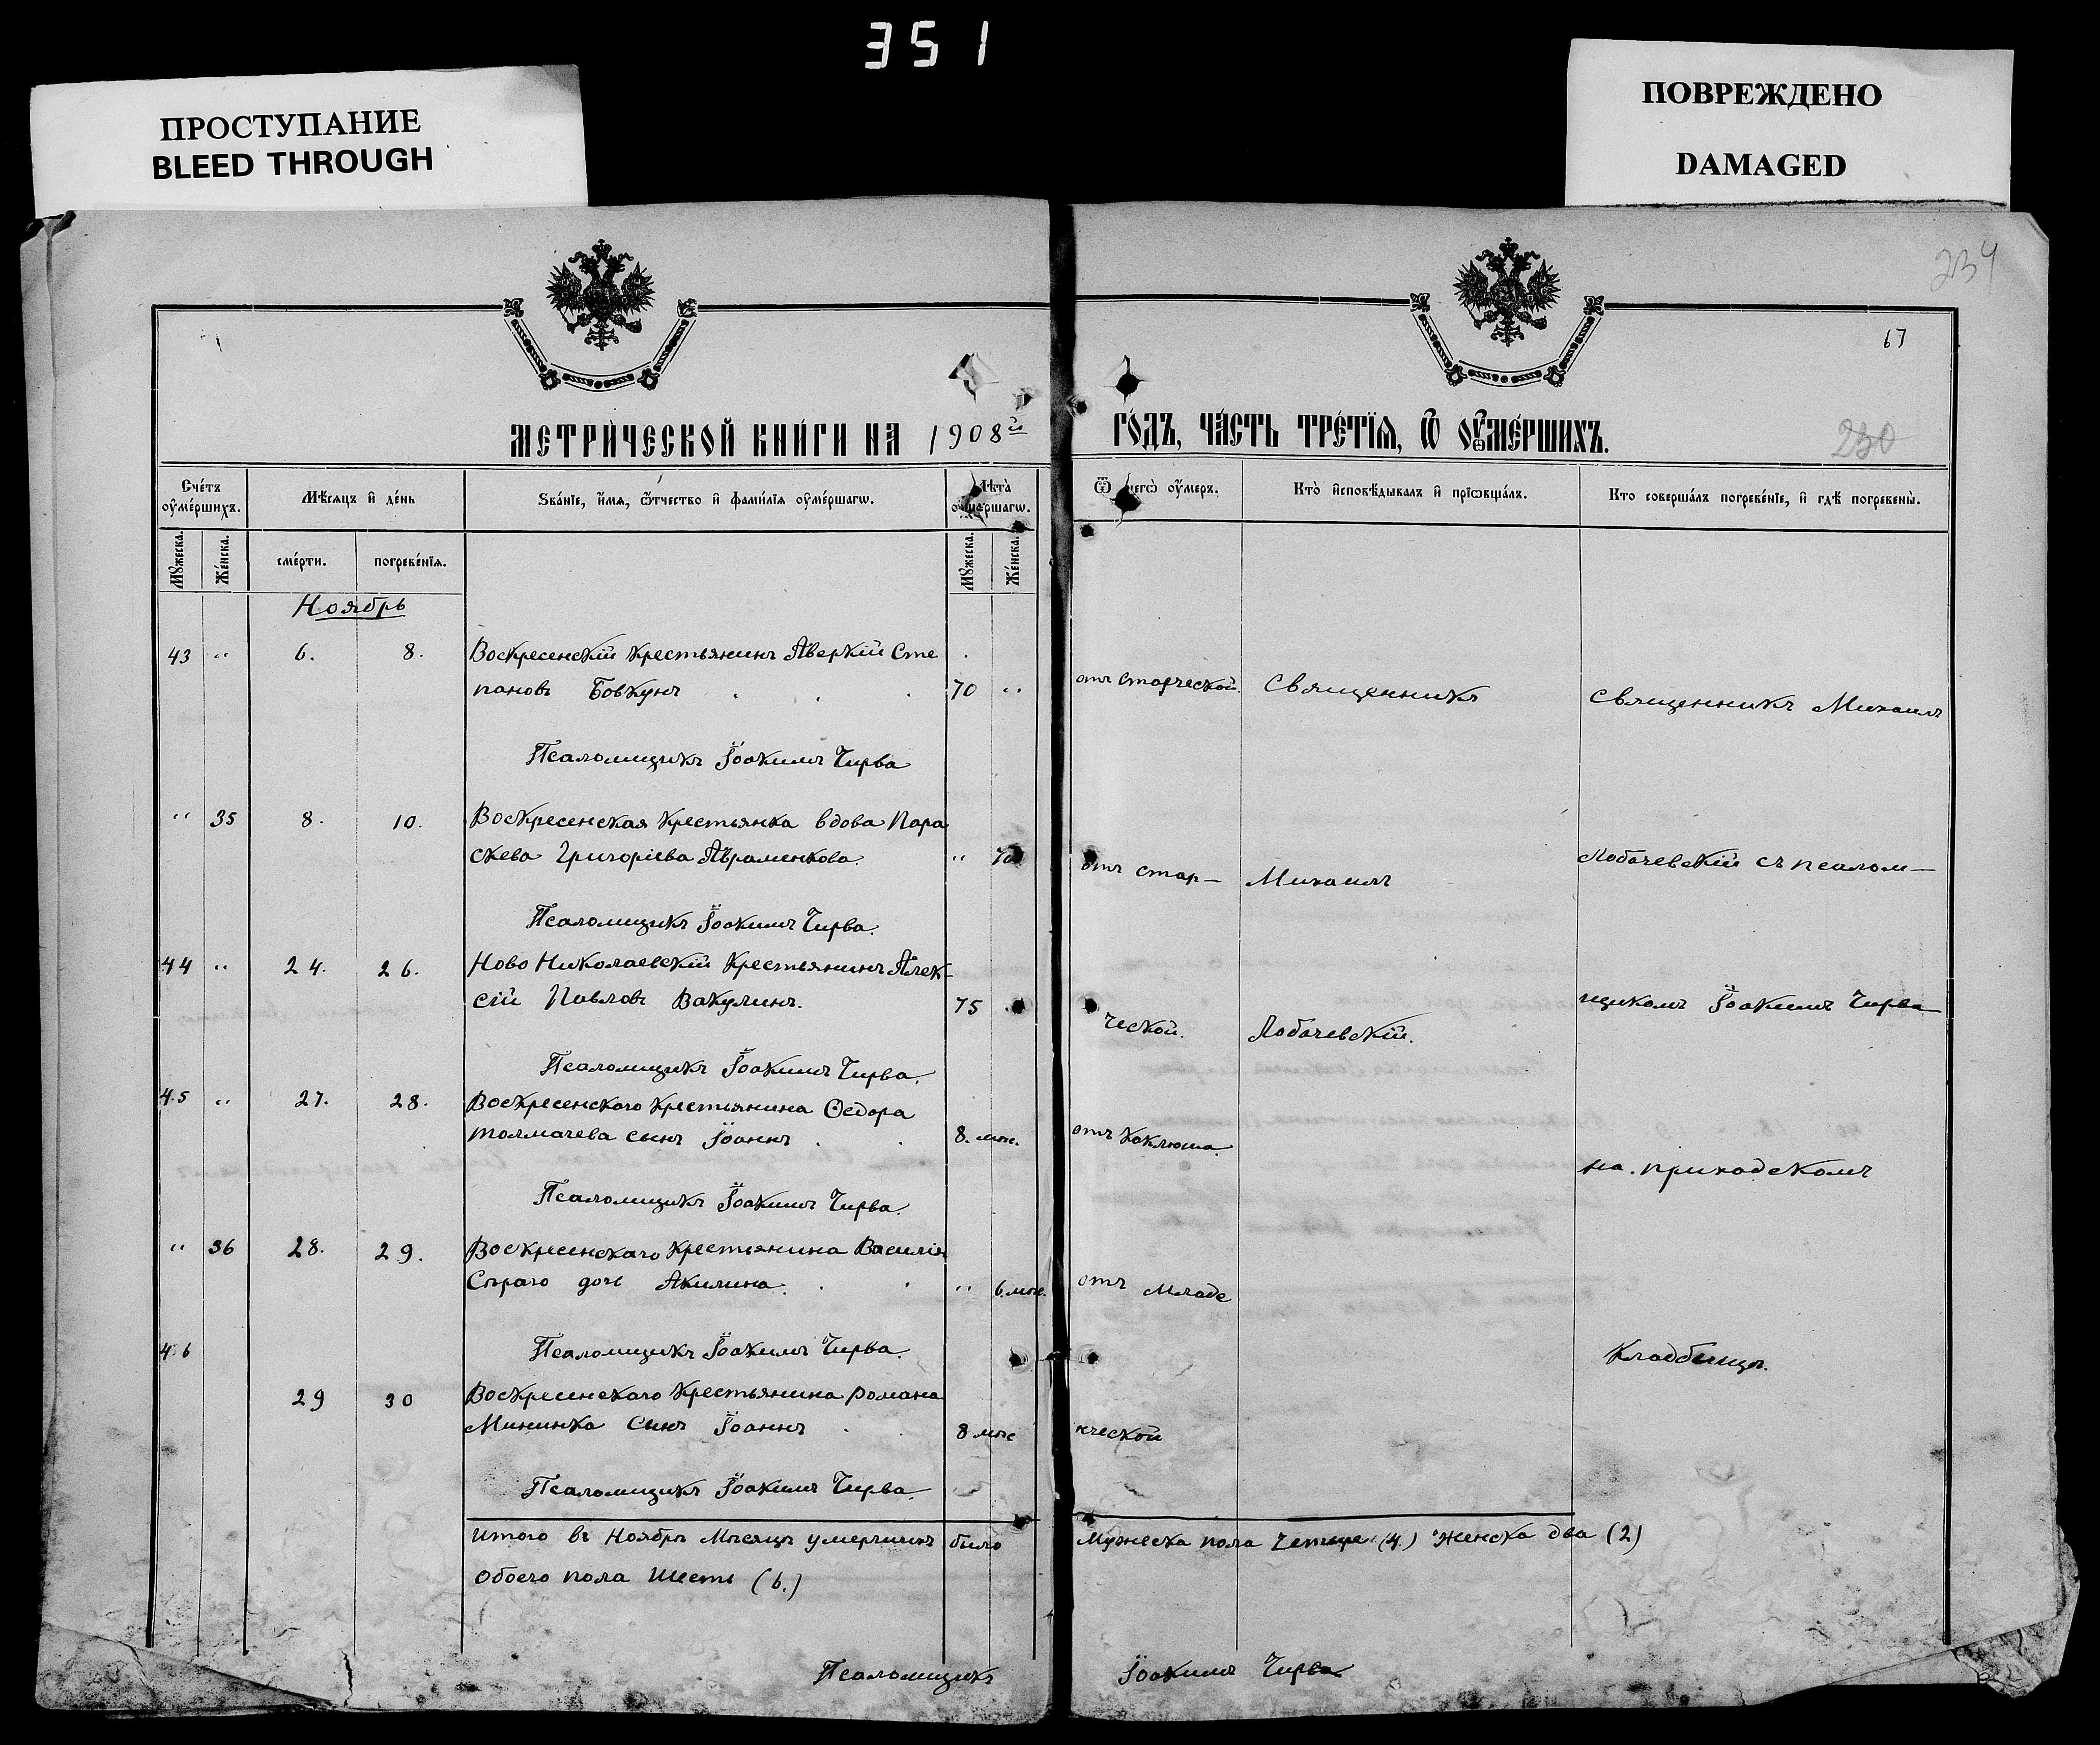 351
ПРОСТУПАНИЕ
BLEED THROUGH
ПОВРЕЖДЕНО
DAMAGED
234
67
МЕТРИ́ЧЕСКОЙ КНИ́ГИ НА 1908й
ГО́ДЪ, ЧА́СТЬ ТРЕ́ТЇѦ, Ѿ ОУ҆МЕ́РШИХЪ.
230
Сче́тъ оу҆ме́ршихъ.
Мѣ́сѧцъ и҆ де́нь
Ѕва́нїе, и҆́мѧ, ѻ҆́тчество и҆ фами́лїѧ оу҆ме́ршагѡ.
Лѣ́та оу҆ме́ршагѡ.
Ѿ чегѡ̀ оу҆́меръ.
Кто̀ и҆сповѣ́дывалъ и҆ прїѡбща́лъ.
Кто соверша́лъ погребе́нїе, и҆ гдѣ̀ погребены̀.
Мꙋ́жеска.
Же́нска.
сме́рти.
погребе́нїѧ.
Мꙋ́жеска.
Же́нска.
Ноябрь
43 " 6. 8. Воскресенскій крестьянинъ Аверкій Сте
пановъ Бовкунъ 70 " отъ старческой. Священникъ Священникъ Михаилъ
Псаломщикъ Іоакимъ Чирва
" 35 8. 10. Воскресенская крестьянка вдова Пара
скева Григоріева Авраменкова. " 70 отъ стар— Михаилъ Лобачевскій съ псалом—
Псаломщикъ Іоакимъ Чирва.
44 " 24. 26. Ново Николаевскій крестьянинъ Алек-
сій Павловъ Вакулинъ. 75 ческой. Лобачевскій. щикомъ Іоакимъ Чирва
Псаломщикъ Іоакимъ Чирва.
45 " 27. 28. Воскресенскаго крестьянина Ѳедора
Толмачева сынъ Іоаннъ 8. мѣс. отъ коклюша. на приходскомъ
Псаломщикъ Іоакимъ Чирва.
" 36 28. 29. Воскресенскаго крестьянина Василія
Сѣраго дочь Акилина. " 6. мѣс. отъ младе
Псаломщикъ Іоакимъ Чирва.
46 кладбищѣ.
29 30 Воскресенскаго крестьянина Романа
Мининка сынъ Іоаннъ 8 мѣс нческой
Псаломщикъ Іоакимъ Чирва.
Итого въ Ноябрѣ Мѣсяцѣ умершихъ было Мужеска пола четыре (4.) Женска два (2)
Обоего пола шесть (6.)
Псаломщикъ Іоакимъ Чирва